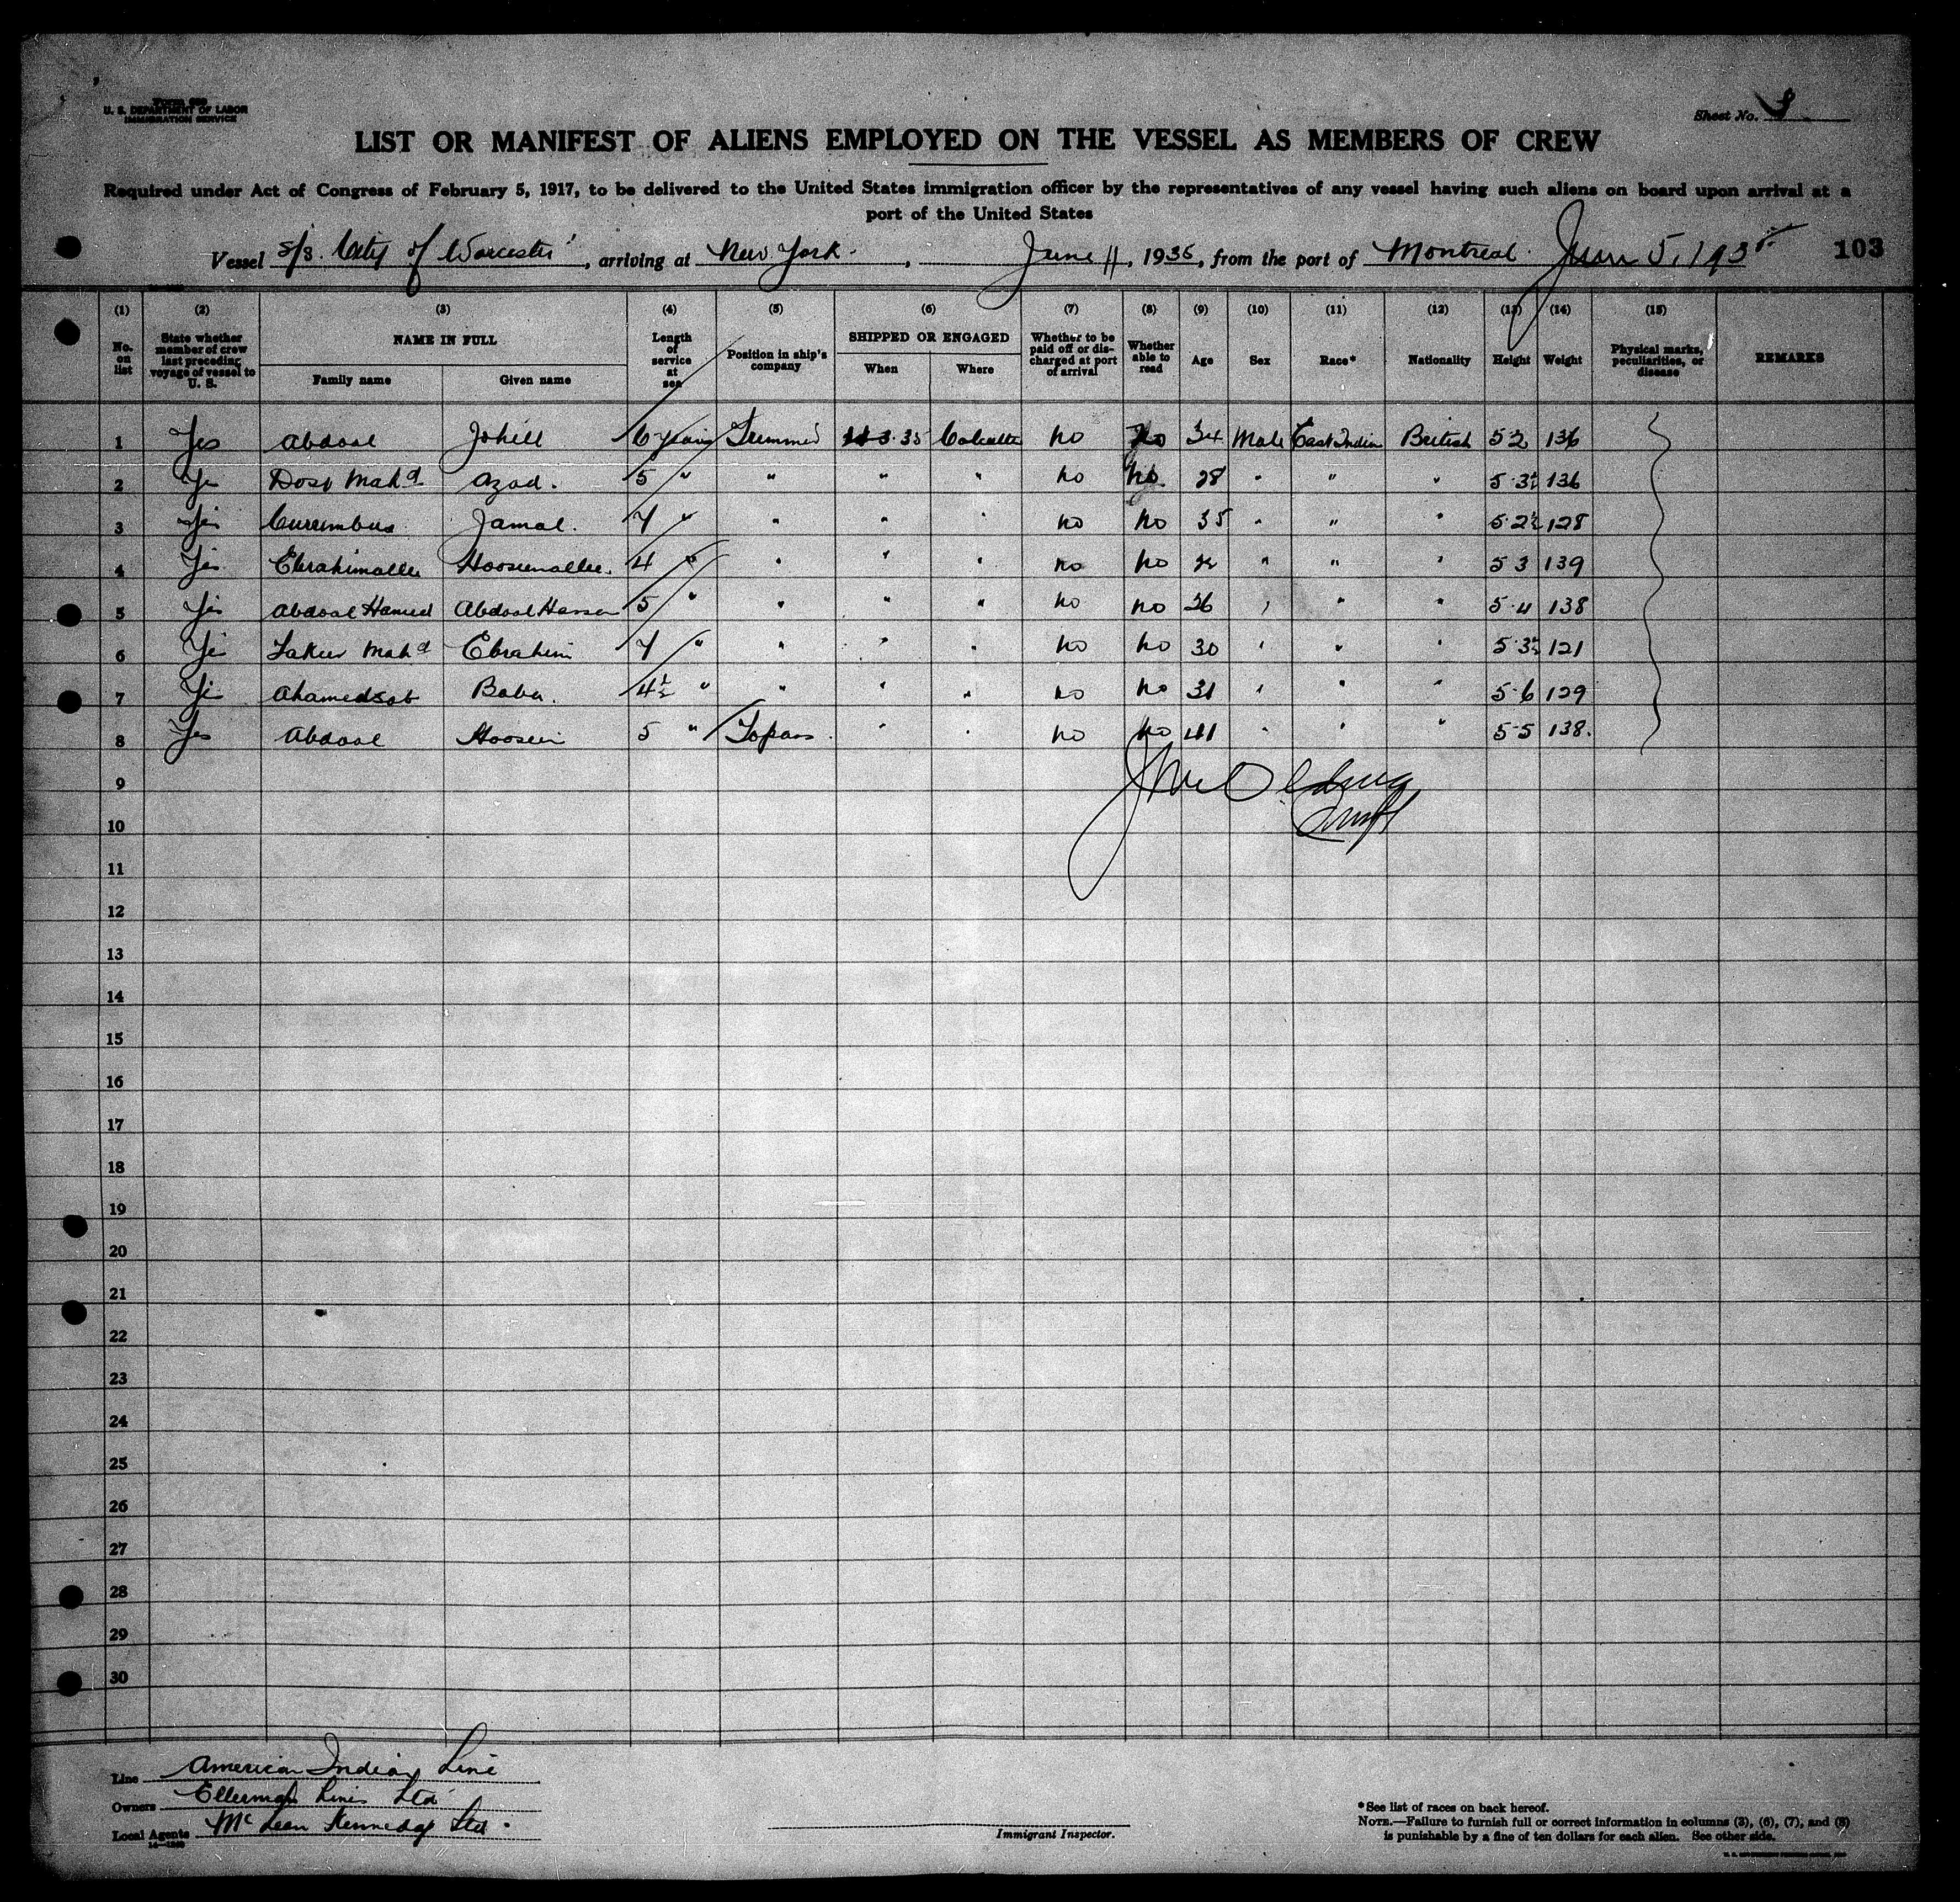 Form 689
U. S. DEPARTMENT OF LABOR
IMMIGRATION SERVICE
Sheet No. 8
LIST OR MANIFEST OF ALIENS EMPLOYED ON THE VESSEL AS MEMBERS OF CREW
Required under Act of Congress of February 5, 1917, to be delivered to the United States immigration officer by the representatives of any vessel having such aliens on board upon arrival at a
port of the United States
Vessel s/s. City of Worcester, arriving at New York., June 11, 1935, from the port of Montreal. June 5, 1935 103
(1) (2) (3) (4) (5) (6) (7) (8) (9) (10) (11) (12) (13) (14) (15)
No. on list State whether member of crew last preceding voyage of vessel to U. S. NAME IN FULL Family name Given name Length of service at sea Position in ship's company SHIPPED OR ENGAGED When Where Whether to be paid off or discharged at port of arrival Whether able to read Age Sex Race* Nationality Height Weight Physical marks, peculiarities, or disease REMARKS
1 Yes Abdool Johill 6 years Trimmer 3.35 Calcutta no no 34 Male East Indian British 5 2 136
2 Yes Dost Mahd Azad. 5 " " " " no no 28 " " " 5 3½ 136
3 Yes Currimbux Jamal. 7 " " " " no no 35 " " " 5 2½ 128
4 Yes Ebrahimallee Hoosienallee. 4 " " " " no no " " " 5 3 139
5 Yes Abdool Hamed Abdool Hassan 5 " " " " no no 36 " " " 5 4 138
6 Yes Fakir Mahd Ebrahim 7 " " " " no no 30 " " " 5 3½ 121
7 Yes Ahamedsab Baba. 4½ " " " " no no 31 " " " 5 6 129
8 Yes Abdool Hoosein 5 " Topass. " " no no 41 " " " 5 5 138.
9
10
11
12
13
14
15
16
17
18
19
20
21
22
23
24
25
26
27
28
29
30
Line American Indian Line
Owners Ellerman Lines Ltd
Local Agents McLean Kennedy Ltd.
Immigrant Inspector.
*See list of races on back hereof.
NOTE.—Failure to furnish full or correct information in columns (3), (6), (7), and (8)
is punishable by a fine of ten dollars for each alien. See other side.